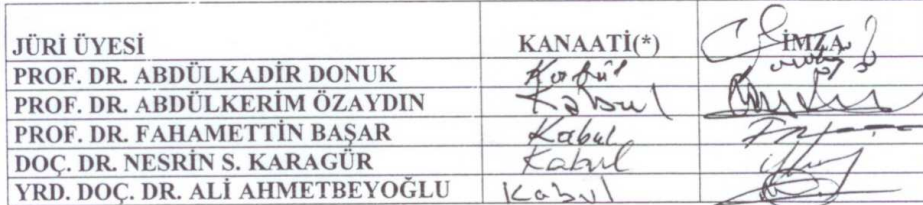 JÜRİ ÜYESİ KANAATİ(*) İMZA
PROF. DR. ABDÜLKADİR DONUK Kabul
PROF. DR. ABDÜLKERİM ÖZAYDIN Kabul
PROF. DR. FAHAMETTİN BAŞAR Kabul
DOÇ. DR. NESRİN S. KARAGÜR Kabul
YRD. DOÇ. DR. ALİ AHMETBEYOĞLU Kabul